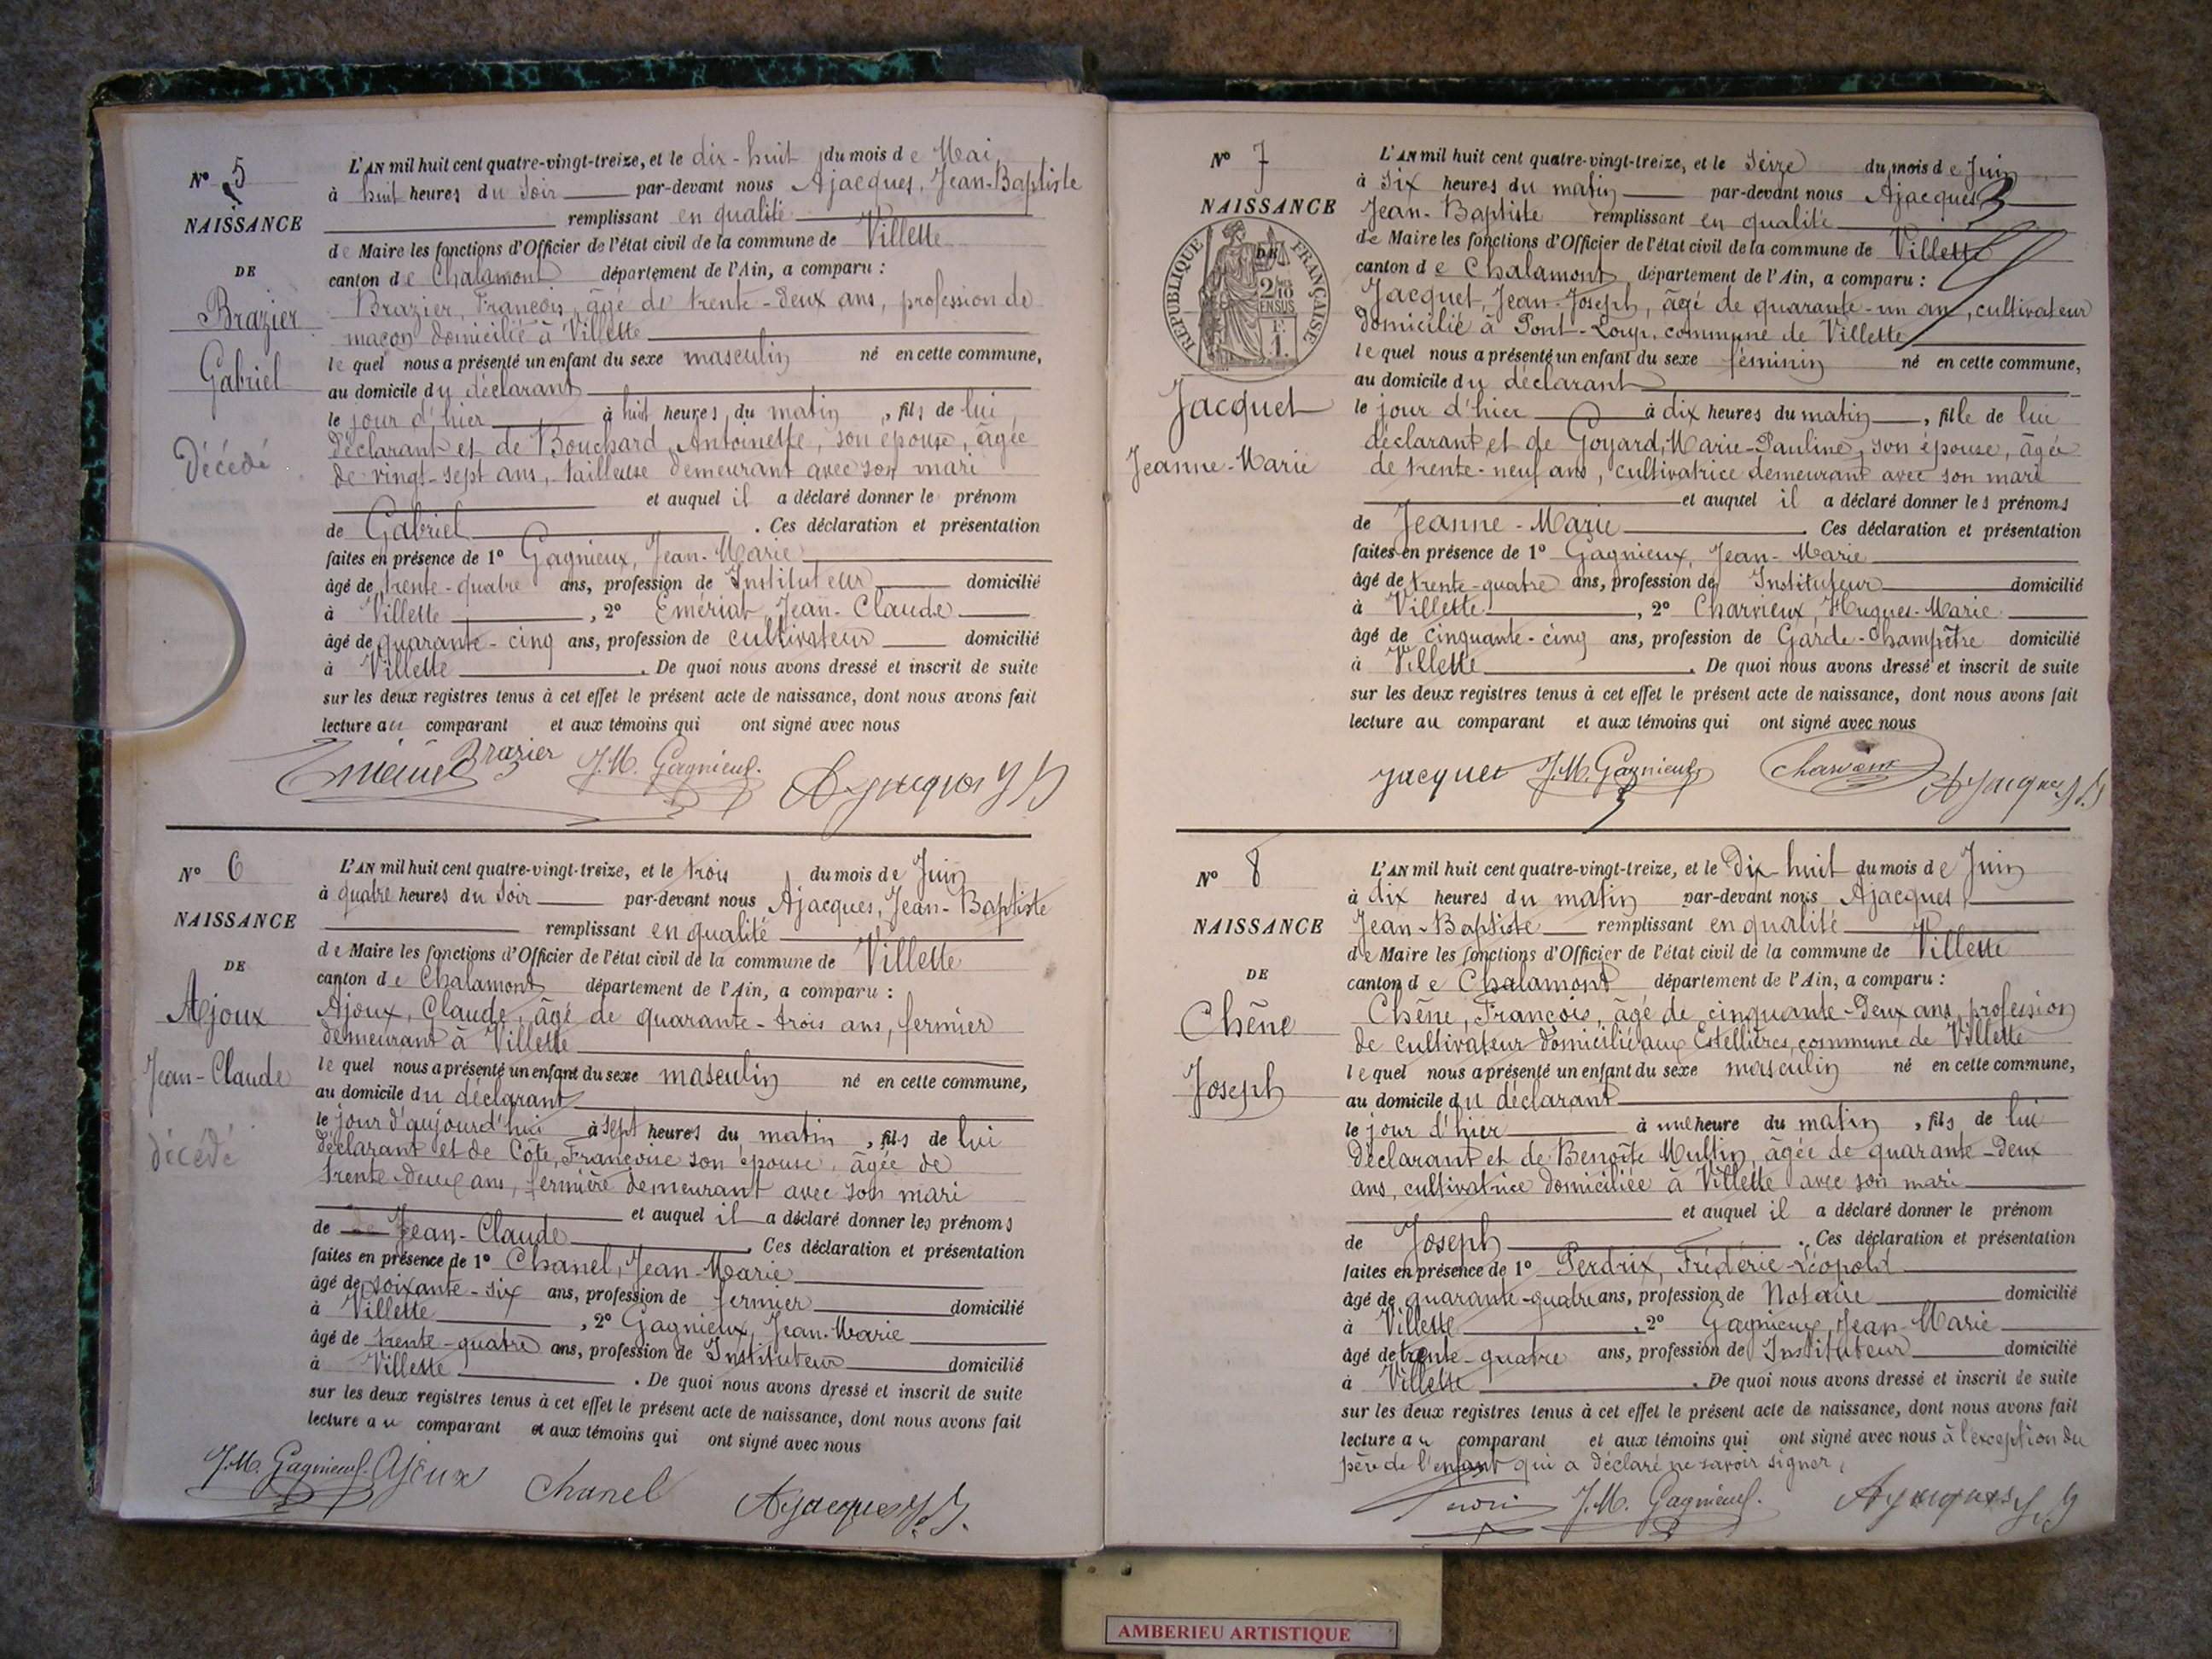 N° 5
NAISSANCE
DE
Brazier
Gabriel
Décédé
L'AN mil huit cent quatre-vingt-treize, et le dix-huit du mois de Mai
à huit heures du soir par-devant nous Ajacques, Jean-Baptiste
remplissant en qualité
de Maire les fonctions d'Officier de l'état civil de la commune de Villette
canton de Chalamont département de l'Ain, a comparu :
Brazier, François, âgé de trente-deux ans, profession de
maçon domicilié à Villette
lequel nous a présenté un enfant du sexe masculin né en cette commune,
au domicile du déclarant
le jour d'hier à huit heures du matin, fils de lui
déclarant et de Bouchard Antoinette, son épouse, âgée
de vingt-sept ans, tailleuse demeurant avec son mari
et auquel il a déclaré donner le prénom
de Gabriel. Ces déclaration et présentation
faites en présence de 1° Gagnieux, Jean-Marie
âgé de trente-quatre ans, profession de Instituteur domicilié
à Villette, 2° Emériat, Jean-Claude
âgé de quarante-cinq ans, profession de cultivateur domicilié
à Villette. De quoi nous avons dressé et inscrit de suite
sur les deux registres tenus à cet effet le présent acte de naissance, dont nous avons fait
lecture au comparant et aux témoins qui ont signé avec nous
Brazier J.M. Gagnieux. Ajacques J B
N° 6
NAISSANCE
DE
Ajoux
Jean-Claude
décédé
L'AN mil huit cent quatre-vingt-treize, et le trois du mois de Juin
à quatre heures du soir par-devant nous Ajacques, Jean-Baptiste
remplissant en qualité
de Maire les fonctions d'Officier de l'état civil de la commune de Villette
canton de Chalamont département de l'Ain, a comparu :
Ajoux, Claude, âgé de quarante-trois ans, fermier
demeurant à Villette
lequel nous a présenté un enfant du sexe masculin né en cette commune,
au domicile du déclarant
le jour d'aujourd'hui à sept heures du matin, fils de lui
déclarant et de Côte, Françoise son épouse, âgée de
trente-deux ans, fermière demeurant avec son mari
et auquel il a déclaré donner les prénoms
de Jean-Claude. Ces déclaration et présentation
faites en présence de 1° Chanel, Jean-Marie
âgé de soixante-six ans, profession de fermier domicilié
à Villette, 2° Gagnieux, Jean-Marie
âgé de trente-quatre ans, profession de Instituteur domicilié
à Villette. De quoi nous avons dressé et inscrit de suite
sur les deux registres tenus à cet effet le présent acte de naissance, dont nous avons fait
lecture au comparant et aux témoins qui ont signé avec nous
J.M. Gagnieux. Ajoux Chanel Ajacques J.B.
N° 7
NAISSANCE
DE
RÉPUBLIQUE FRANÇAISE
2/10 EN SUS
1F.
Jacquet
Jeanne-Marie
L'AN mil huit cent quatre-vingt-treize, et le seize du mois de Juin
à six heures du matin par-devant nous Ajacques
Jean-Baptiste remplissant en qualité
de Maire les fonctions d'Officier de l'état civil de la commune de Villette
canton de Chalamont département de l'Ain, a comparu :
Jacquet, Jean-Joseph, âgé de quarante-un an, cultivateur
domicilié à Pont-Loup, commune de Villette
lequel nous a présenté un enfant du sexe féminin né en cette commune,
au domicile du déclarant
le jour d'hier à dix heures du matin, fille de lui
déclarant et de Goyard, Marie-Pauline, son épouse, âgée
de trente-neuf ans, cultivatrice demeurant avec son mari
et auquel il a déclaré donner les prénoms
de Jeanne-Marie. Ces déclaration et présentation
faites en présence de 1° Gagnieux, Jean-Marie
âgé de trente-quatre ans, profession de Instituteur domicilié
à Villette, 2° Charvieux, Hugues-Marie
âgé de cinquante-cinq ans, profession de Garde-champêtre domicilié
à Villette. De quoi nous avons dressé et inscrit de suite
sur les deux registres tenus à cet effet le présent acte de naissance, dont nous avons fait
lecture au comparant et aux témoins qui ont signé avec nous
Jacquet J.M. Gagnieux Ajacques J.B
N° 8
NAISSANCE
DE
Chêne
Joseph
L'AN mil huit cent quatre-vingt-treize, et le Dix-huit du mois de Juin
à dix heures du matin par-devant nous Ajacques,
Jean-Baptiste remplissant en qualité
de Maire les fonctions d'Officier de l'état civil de la commune de Villette
canton de Chalamont département de l'Ain, a comparu :
Chêne, François, âgé de cinquante-deux ans, profession
de cultivateur domicilié aux Estellières, commune de Villette
lequel nous a présenté un enfant du sexe masculin né en cette commune,
au domicile du déclarant
le jour d'hier à une heure du matin, fils de lui
déclarant et de Benoîte Multin, âgée de quarante-deux
ans, cultivatrice domiciliée à Villette avec son mari
et auquel il a déclaré donner le prénom
de Joseph. Ces déclaration et présentation
faites en présence de 1° Perdrix, Frédéric-Léopold
âgé de quarante-quatre ans, profession de Notaire domicilié
à Villette, 2° Gagnieux, Jean-Marie
âgé de trente-quatre ans, profession de Instituteur domicilié
à Villette. De quoi nous avons dressé et inscrit de suite
sur les deux registres tenus à cet effet le présent acte de naissance, dont nous avons fait
lecture au comparant et aux témoins qui ont signé avec nous à l'exception du
père de l'enfant qui a déclaré ne savoir signer.
J.M. Gagnieux. Ajacques J B
AMBERIEU ARTISTIQUE